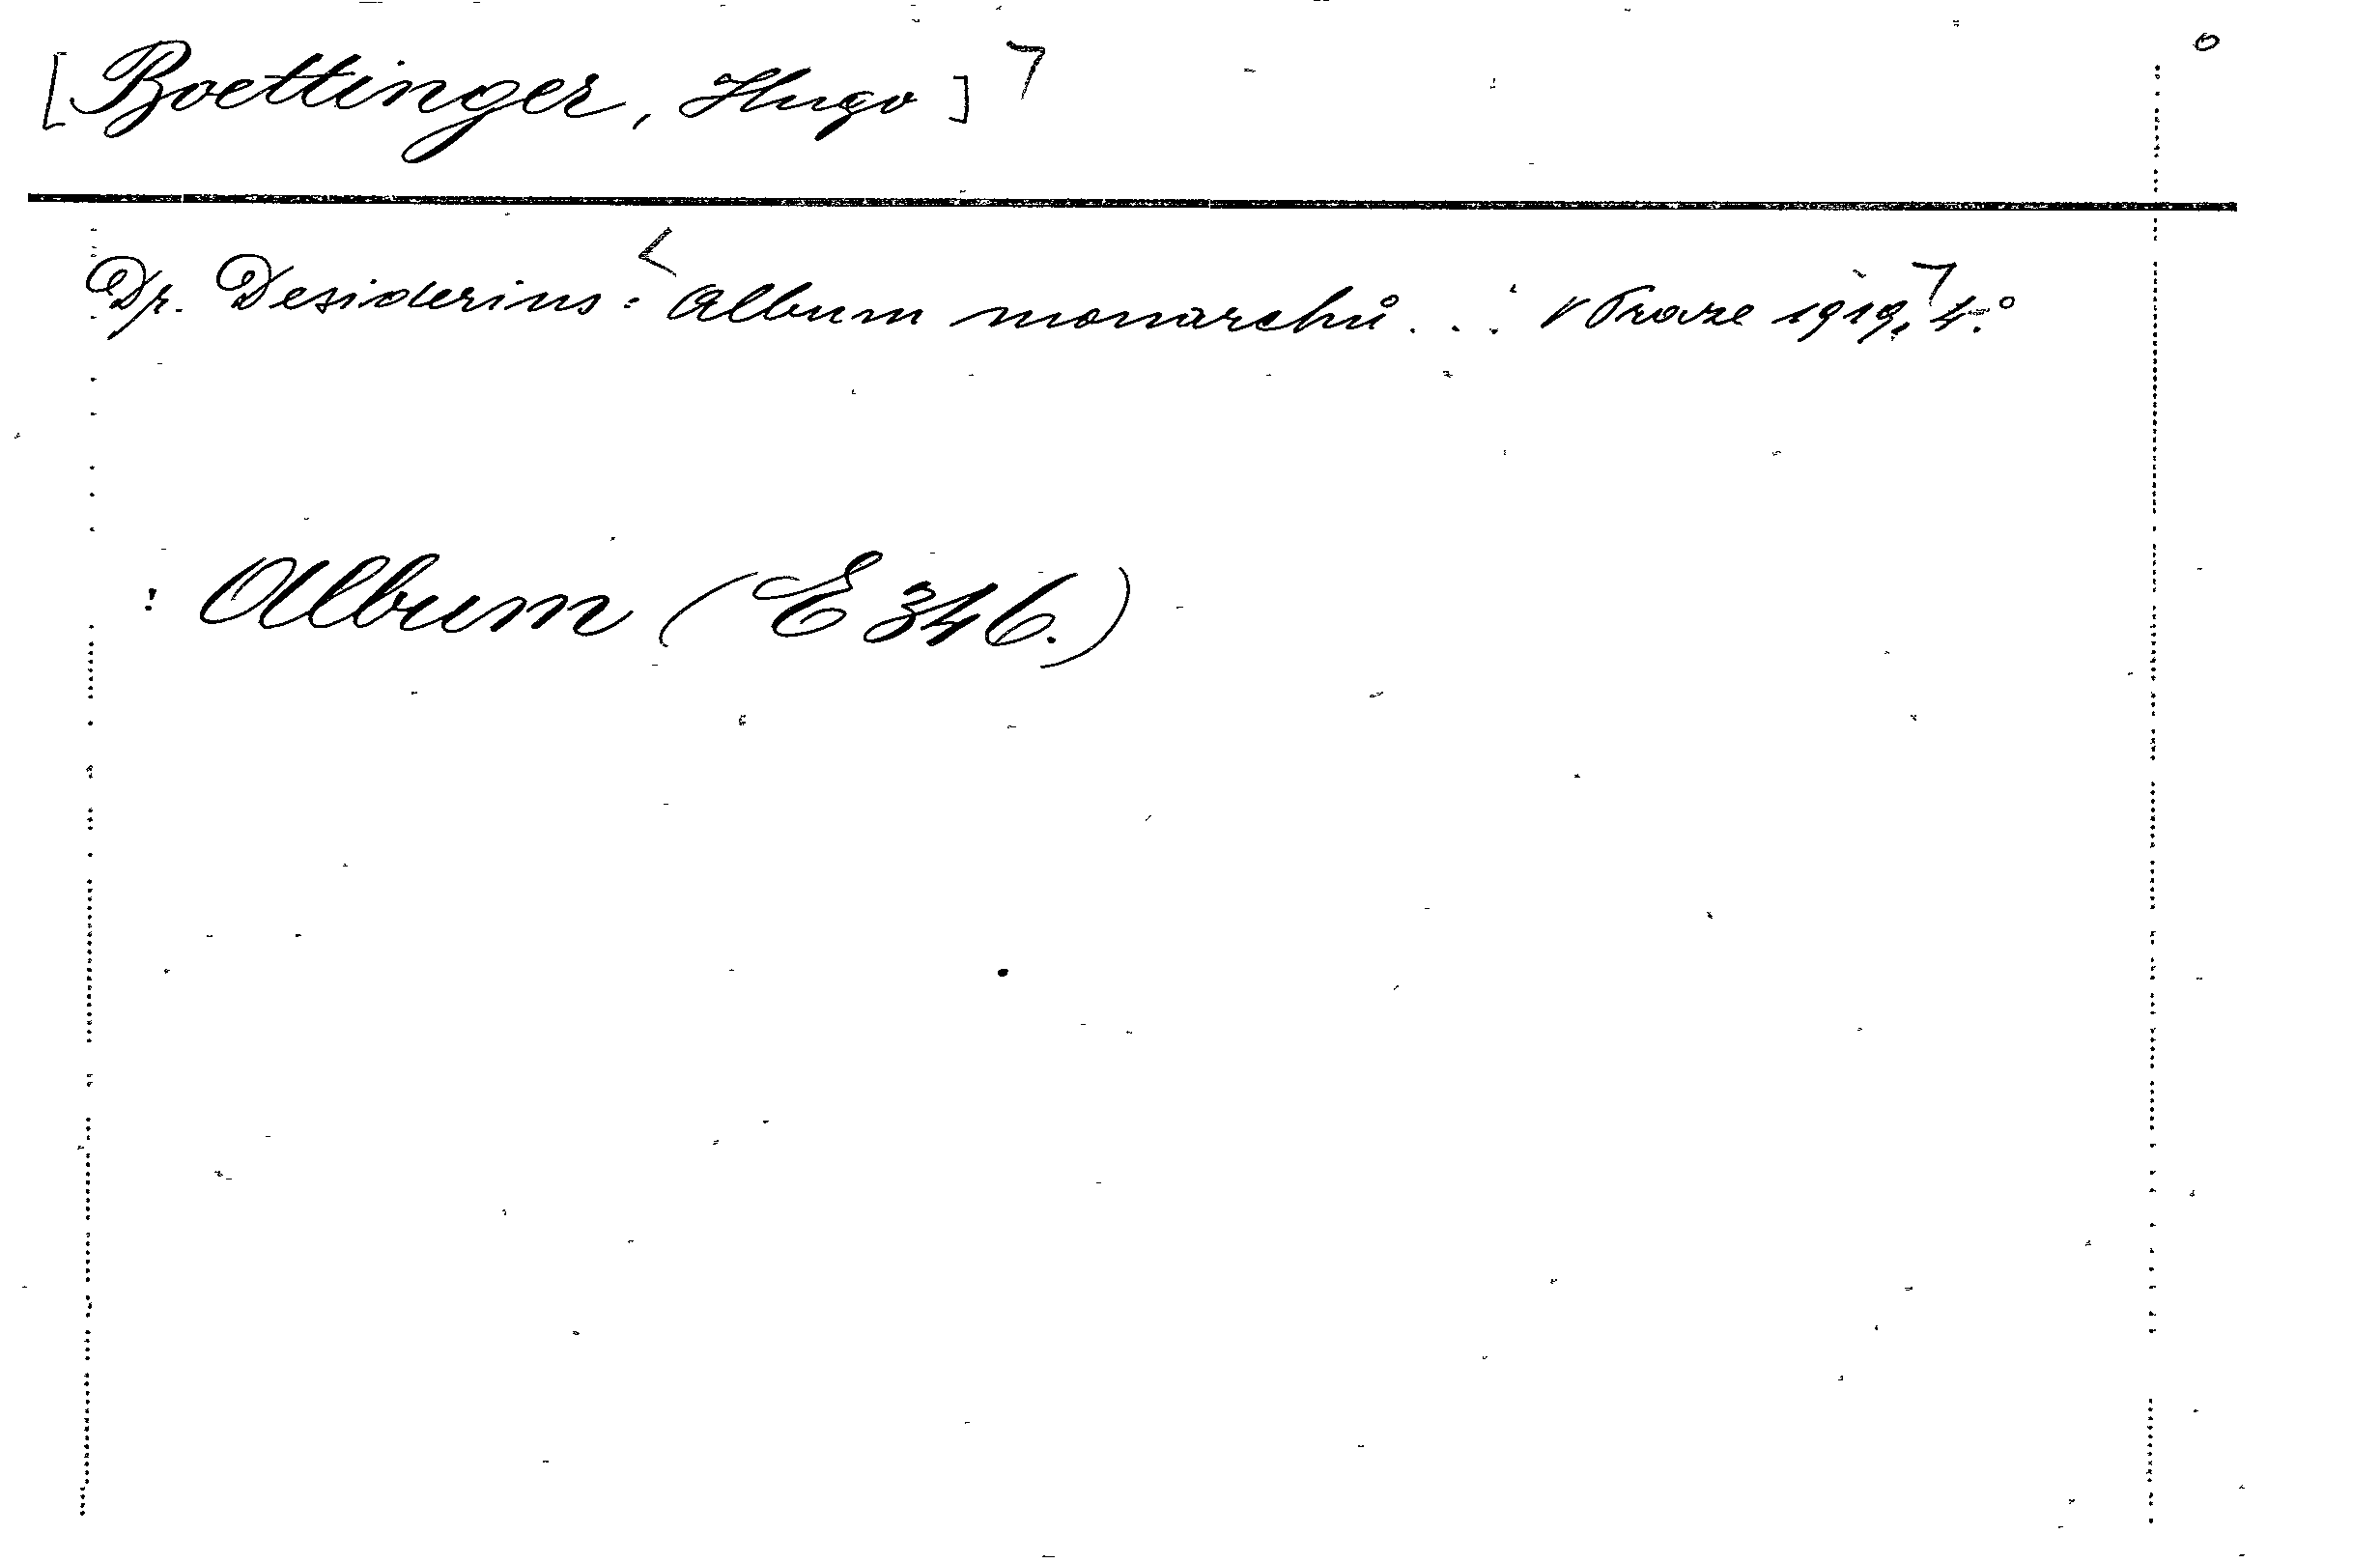 [Boettinger, Hugo]
Dr. Desiderius: Album monarchů... v Praze 1919, 4.°
: Album (E 346.)